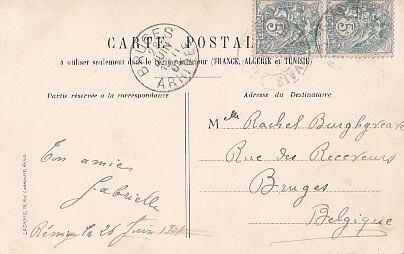 CARTE POSTALE
à utiliser seulement dans le service intérieur (FRANCE, ALGÉRIE et TUNISIE)
Partie réservée a la correspondance
Adresse du Destinataire
Mlle Rachel Burghgraeve
Rue des Receveurs
Bruges
Belgique
Ton amie
Gabrielle
Rémy le 26 Juin
5
5